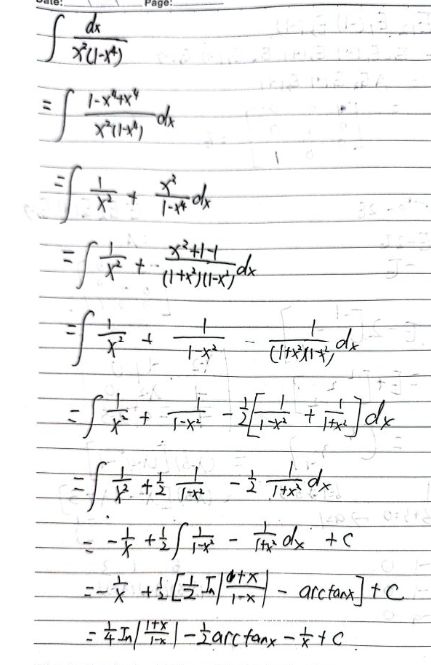 Date: Page:
∫ dx / x²(1-x⁴)
= ∫ (1-x⁴+x⁴) / (x²(1-x⁴)) dx
= ∫ 1/x² + x²/(1-x⁴) dx
= ∫ 1/x² + (x²+1-1) / ((1+x²)(1-x²)) dx
= ∫ 1/x² + 1/(1-x²) - 1/((1+x²)(1-x²)) dx
= ∫ 1/x² + 1/(1-x²) - ½[1/(1-x²) + 1/(1+x²)] dx
= ∫ 1/x² + ½ 1/(1-x²) - ½ 1/(1+x²) dx
= -1/x + ½ ∫ 1/(1-x²) - 1/(1+x²) dx + C
= -1/x + ½ [½ ln|(1+x)/(1-x)| - arctanx] + C
= ¼ ln|(1+x)/(1-x)| - ½ arctanx - 1/x + C